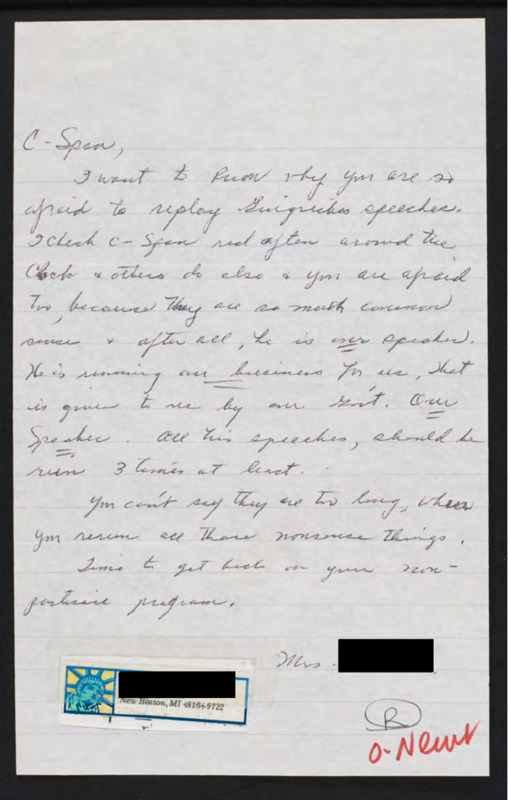 C-Span,
I want to know why you are so
afraid to replay Gingriches speeches.
I check C-Span red often around the
clock & others do also & you are afraid
too, because they are so much common
sense & after all, he is our speaker.
He is running our business for us, that
is given to us by our Gov't. Our
Speaker. All his speeches, should be
run 3 times at least.
You can't say they are too long, when
you rerun all those nonsense things.
Time to get back on your non-
partisine program.
Mrs.
New Boston, MI 48164-9722
R
O-Newt